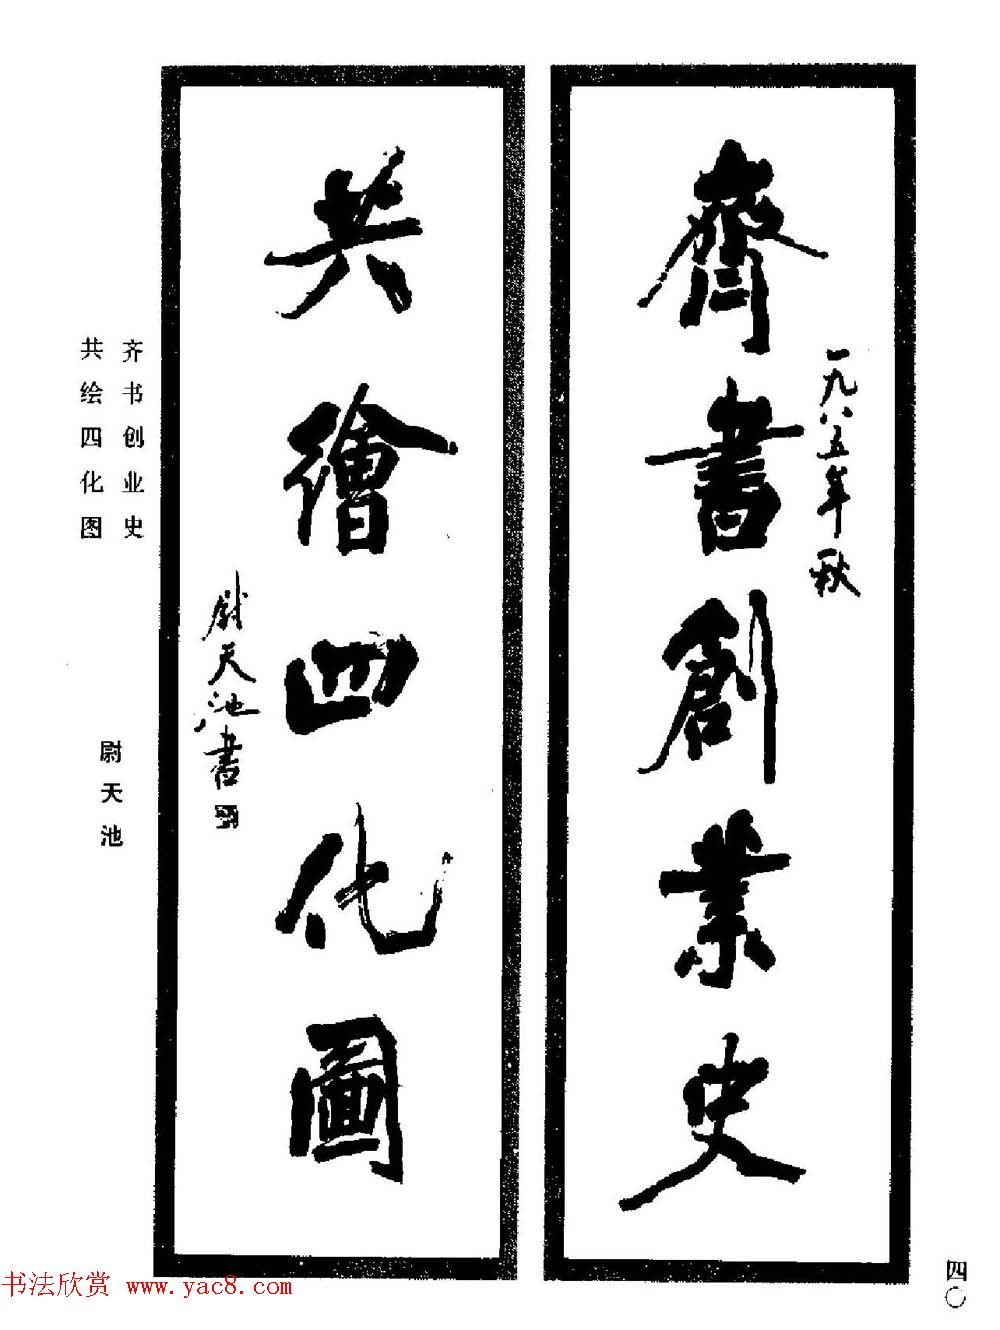 齊書創業史
一九八五年秋
共繪四化圖
尉天池書
齐书创业史
共绘四化图
尉天池
四〇
书法欣赏 www.yac8.com